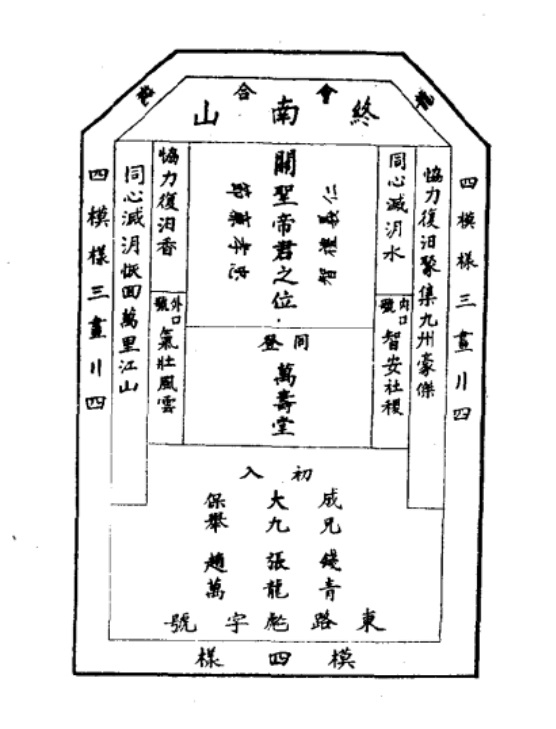 會合
終南山
四模樣三畫川四
協力復汨聚集九州豪傑
同心滅汌水
內口號
智安社稷
仁義禮智
關聖帝君之位
忠孝
協力復汨香
外口號
氣壯風雲
同心滅汌恢回萬里江山
四模樣三畫川四
同登
萬壽堂
初入
成兄 錢青
大九 張龍
保舉 趙萬
東路彪字號
模四樣